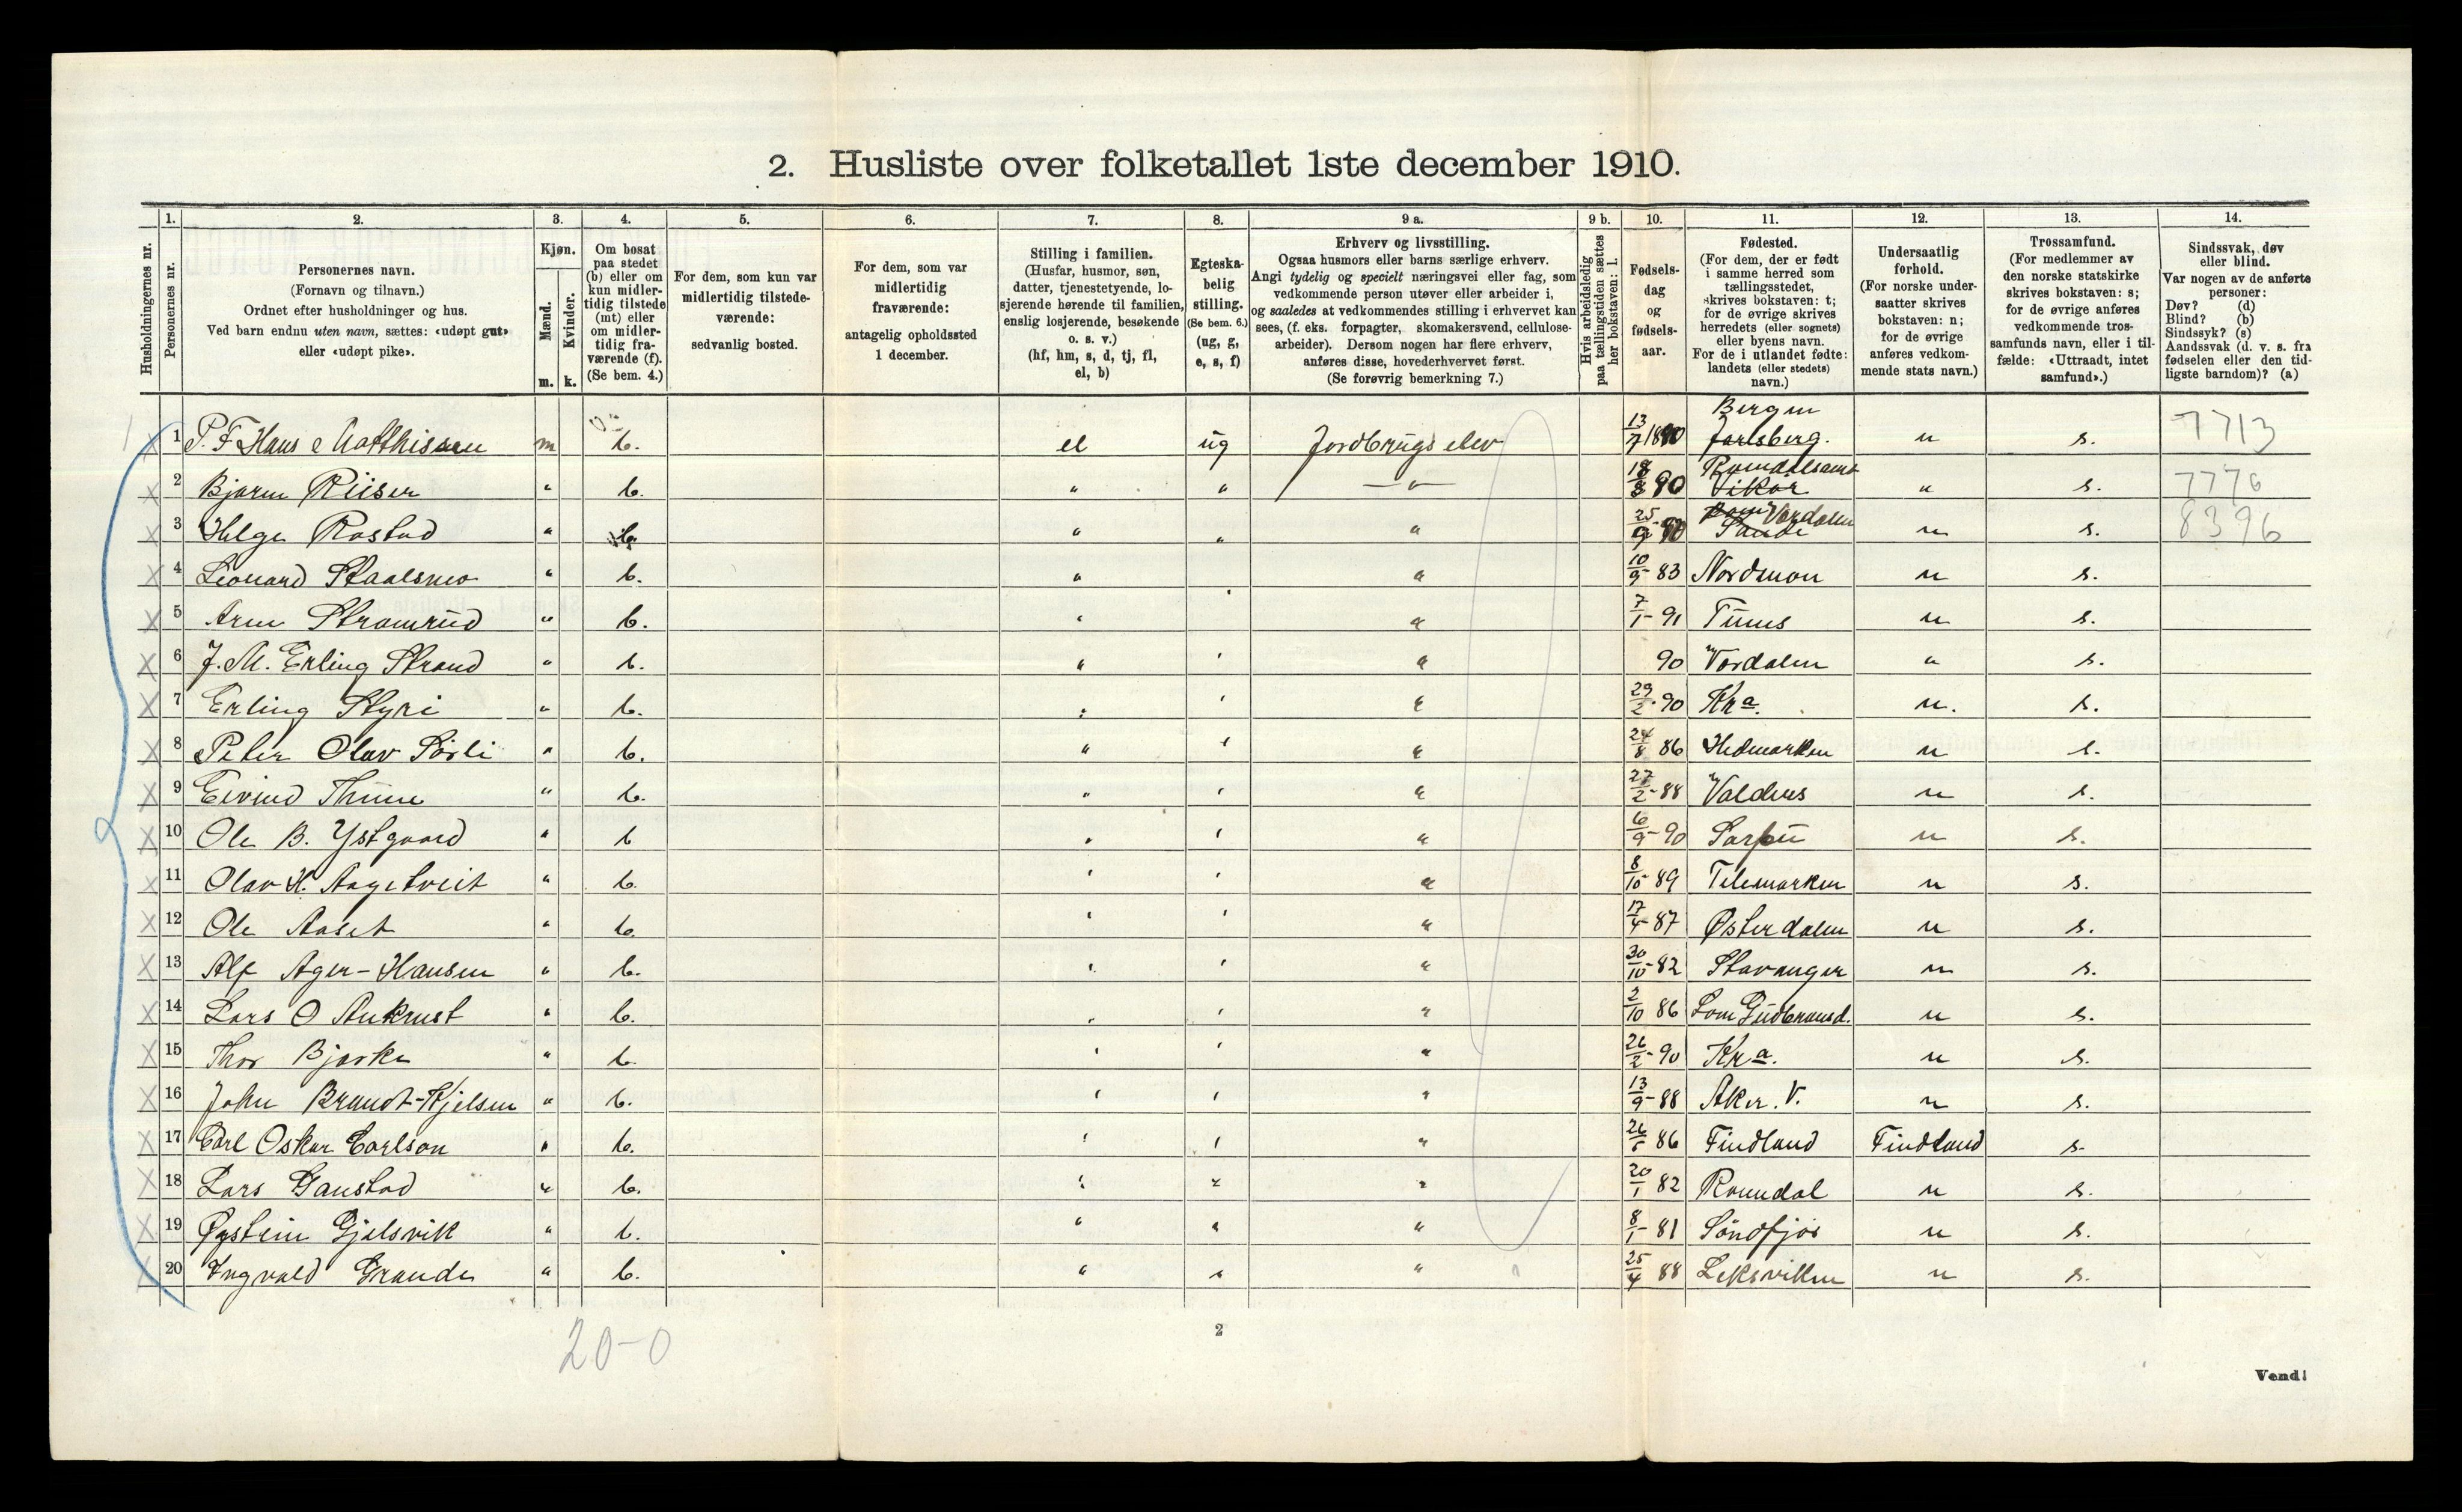 2. Husliste over folketallet 1ste december 1910.
Husholdningernes nr.
1. Personernes nr.
2. Personernes navn.
(Fornavn og tilnavn.)
Ordnet efter husholdninger og hus.
Ved barn endnu uten navn, sættes: «udøpt gut»
eller «udøpt pike».
3. Kjøn.
Mænd. m.
Kvinder. k.
4. Om bosat
paa stedet
(b) eller om
kun midler-
tidig tilstede
(mt) eller
om midler-
tidig fra-
værende (f).
(Se bem. 4.)
5. For dem, som kun var
midlertidig tilstede-
værende:
sedvanlig bosted.
6. For dem, som var
midlertidig
fraværende:
antagelig opholdssted
1 december.
7. Stilling i familien.
(Husfar, husmor, søn,
datter, tjenestetyende, lo-
sjerende hørende til familien,
enslig losjerende, besøkende
o. s. v.)
(hf, hm, s, d, tj, fl,
el, b)
8. Egteska-
belig
stilling.
(Se bem. 6.)
(ug, g,
e, s, f)
9 a. Erhverv og livsstilling.
Ogsaa husmors eller barns særlige erhverv.
Angi tydelig og specielt næringsvei eller fag, som
vedkommende person utøver eller arbeider i,
og saaledes at vedkommendes stilling i erhvervet kan
sees, (f. eks. forpagter, skomakersvend, cellulose-
arbeider). Dersom nogen har flere erhverv,
anføres disse, hovederhvervet først.
(Se forøvrig bemerkning 7.)
9 b. Hvis arbeidsledig
paa tællingstiden sættes
her bokstaven: l.
10. Fødsels-
dag
og
fødsels-
aar.
11. Fødested.
(For dem, der er født
i samme herred som
tællingsstedet,
skrives bokstaven: t;
for de øvrige skrives
herredets (eller sognets)
eller byens navn.
For de i utlandet fødte:
landets (eller stedets)
navn.)
12. Undersaatlig
forhold.
(For norske under-
saatter skrives
bokstaven: n;
for de øvrige
anføres vedkom-
mende stats navn.)
13. Trossamfund.
(For medlemmer av
den norske statskirke
skrives bokstaven: s;
for de øvrige anføres
vedkommende tros-
samfunds navn, eller i til-
fælde: «Uttraadt, intet
samfund».)
14. Sindssvak, døv
eller blind.
Var nogen av de anførte
personer:
Døv? (d)
Blind? (b)
Sindssyk? (s)
Aandssvak (d. v. s. fra
fødselen eller den tid-
ligste barndom)? (a)
Bergen
1 1 P. F. Hans Matthissen m b. el ug Jordbrugselev 13/7 1890 Jarlsberg. n s. 7713
Romsdalsamt
X 2 Bjarne Riiser " b. " " —"— 18/8 90 Vikør " s. 7776
Værdalen
X 3 Helge Rostad " b. " " " 25/9 90 Sande n s. 8396
X 4 Leonard Staalsmo " b. " ' " 10/9 83 Nordmøn n s.
X 5 Arne Strømrud " b. " " 7/1 - 91 Tunes n s.
X 6 J. M. Erling Strand " b. " ' " 90 Værdalen " s.
X 7 Erling Styri " b. " ' " 29/2 - 90 Kra. n. s.
X 8 Peter Olav Sørli " b. " ' " 24/8 86 Hedmarken n s.
X 9 Eivind Thune " b. " ' " 27/2 - 88 Valders n s.
X 10 Ole B. Ystgaard " b " ' " 6/9 - 90 Sarpu n s.
X 11 Olav H. Aagetveit " b. ' ' " 8/10 - 89 Telemarken n s.
X 12 Ole Aaset " b. ' ' " 17/4 - 87 Østerdalen n s.
X 13 Alf Ager-Hansen " b. ' ' " 30/10 - 82 Stavanger n s.
X 14 Lars O Aukrust " b. ' ' " 2/10 86 Lom Gudbransd. n s.
X 15 Thor Bjerke " b. ' ' " 26/2 - 90 Kra. n s.
X 16 John Brandt-Kjelsen " b. ' ' " 13/9 - 88 Aker. V. n s.
X 17 Carl Oskar Carlson " b. ' ' " 26/5 86 Findland Findland s.
X 18 Lars Ganstad " b. ' " " 20/1 82 Romsdal n s.
X 19 Øystein Gjelsvik " b. " " " 8/1 - 81 Søndfjor n s.
X 20 Ingvald Grande " b. " " " 25/4 88 Leksviken n s.
20-0
2
Vend!